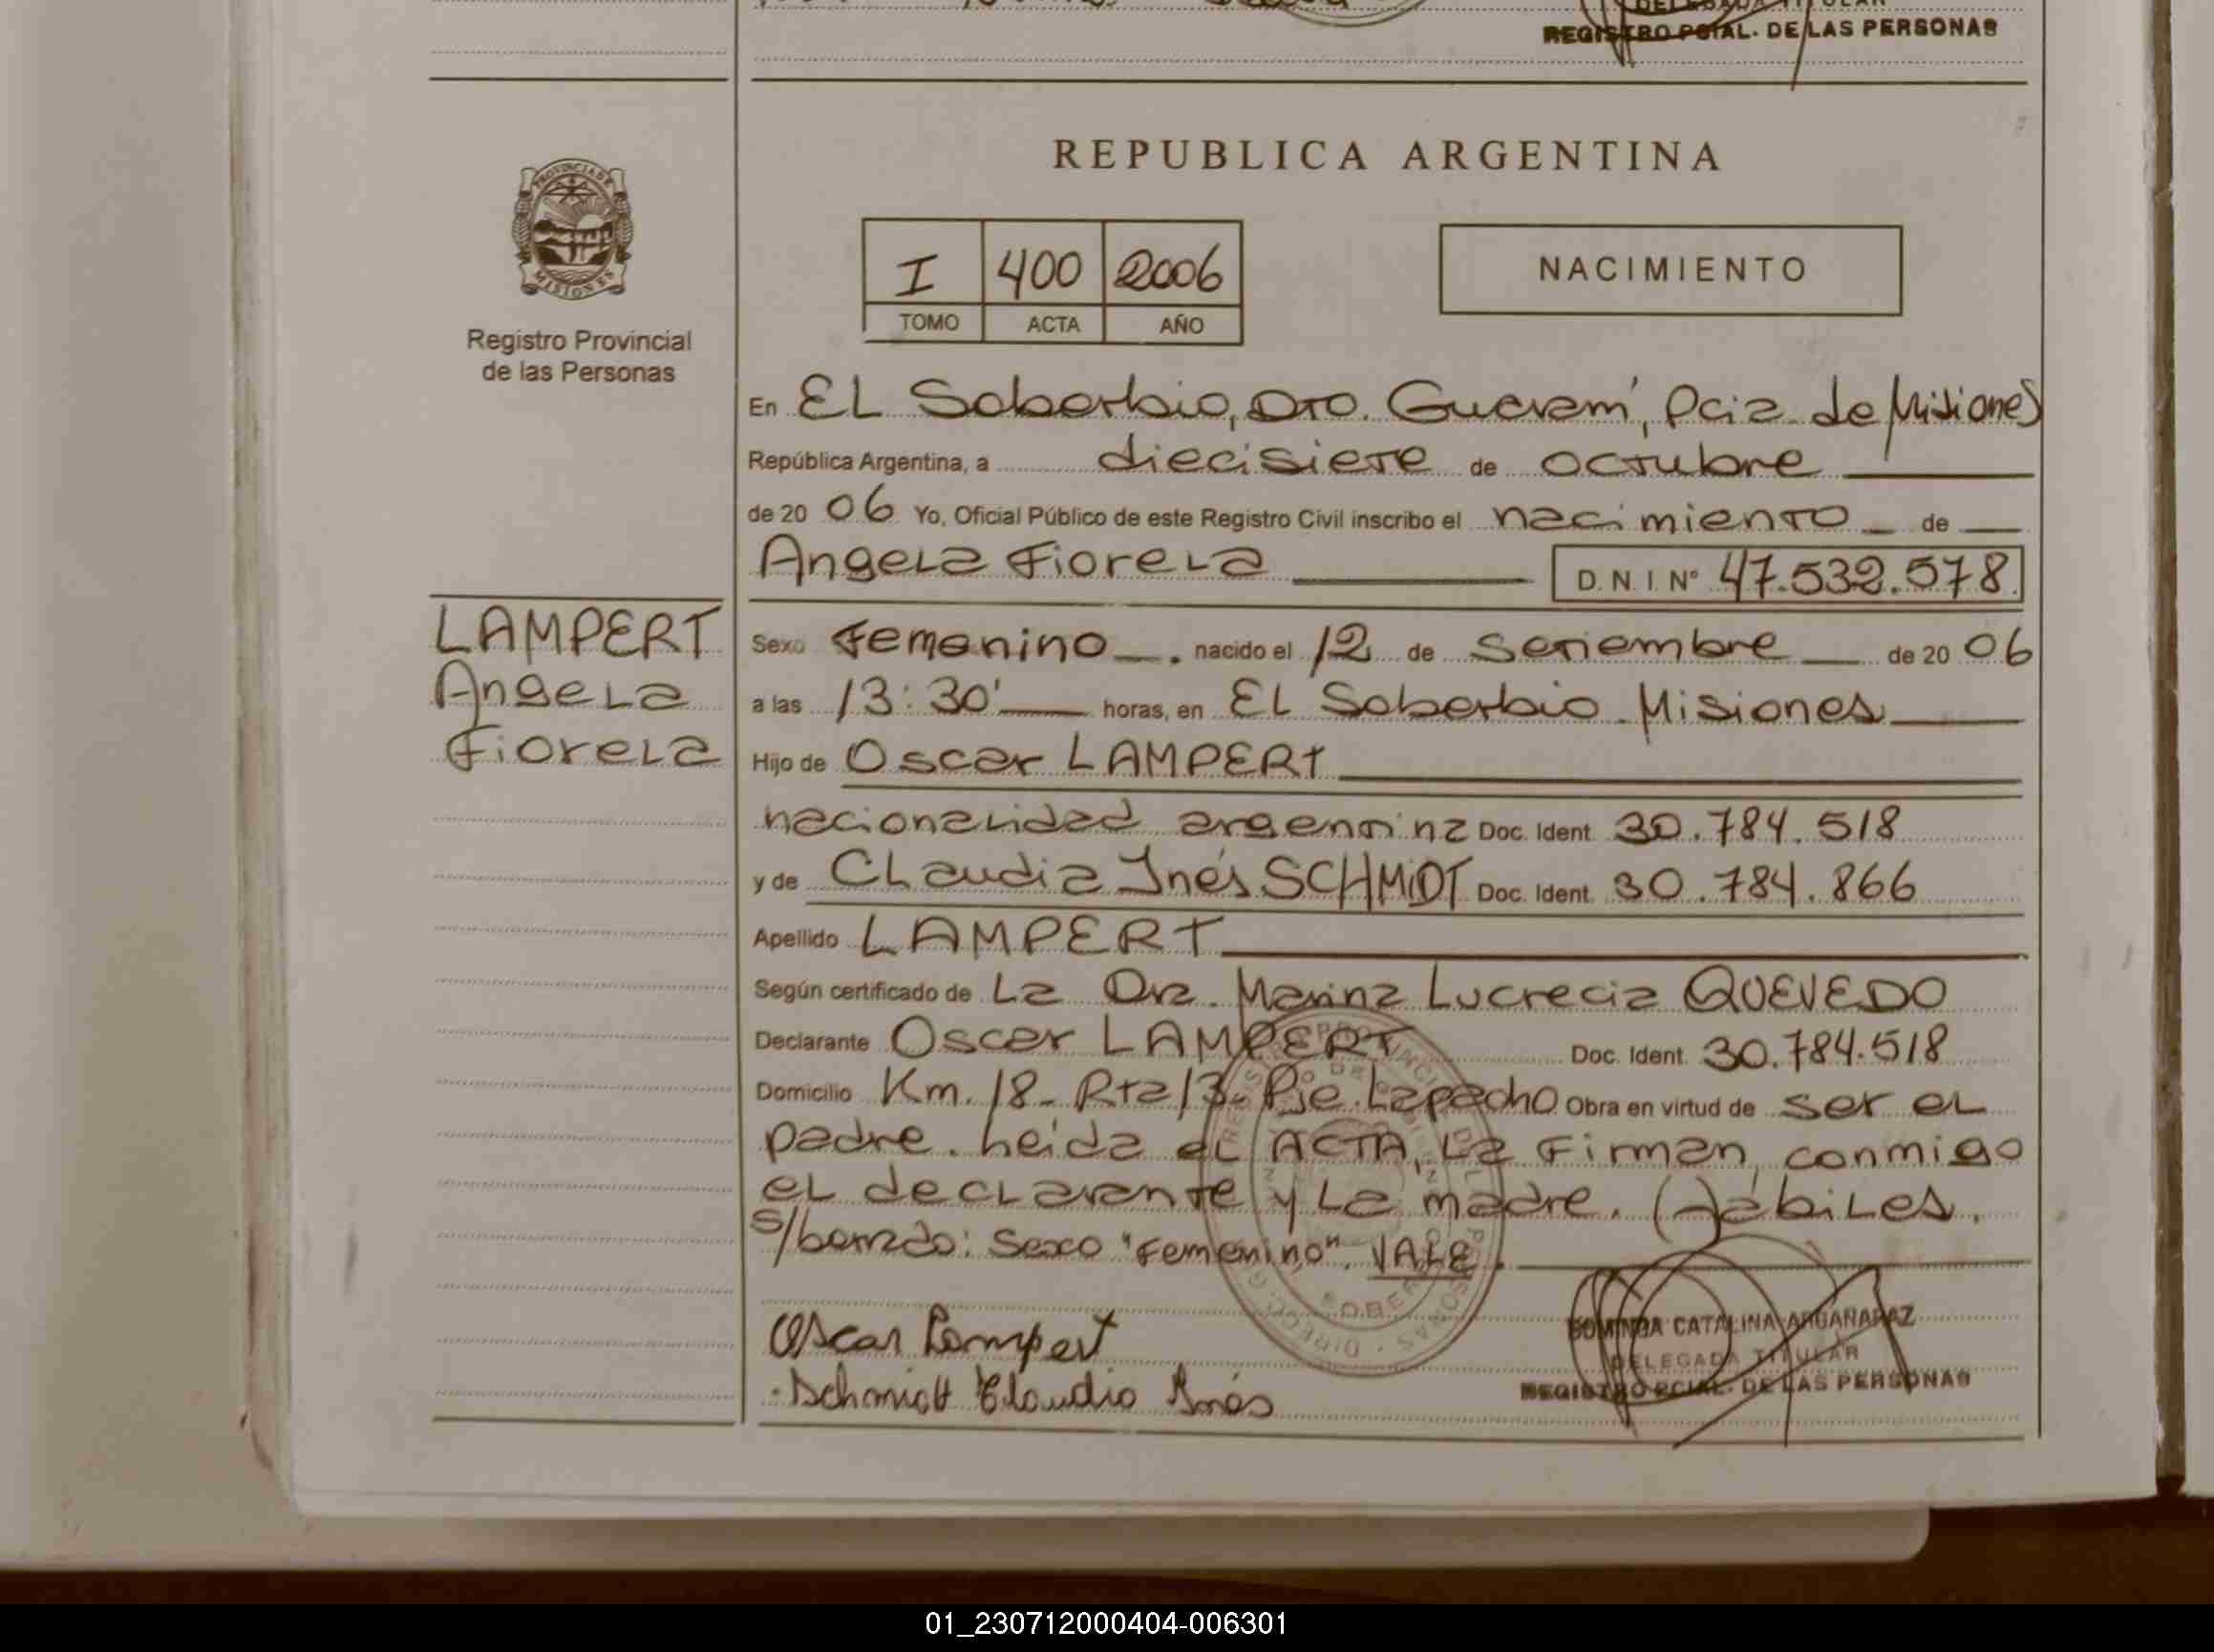 REGISTRO PCIAL. DE LAS PERSONAS
PROVINCIA DE
MISIONES
Registro Provincial
de las Personas
REPUBLICA ARGENTINA
I 400 2006
TOMO ACTA AÑO
NACIMIENTO
En EL Soberbio, Dto. Guaraní, Pcia de Misiones
República Argentina, a diecisiete de octubre
de 20 06 Yo, Oficial Público de este Registro Civil inscribo el nacimiento de
Angela Fiorela D. N. I. Nº 47.532.578
LAMPERT
Angela
Fiorela
Sexo Femenino . nacido el 12 de Setiembre de 20 06
a las 13:30' horas, en EL Soberbio Misiones
Hijo de Oscar LAMPERT
nacionalidad argentina Doc. Ident. 30.784.518
y de Claudia Inés SCHMIDT Doc. Ident. 30.784.866
Apellido LAMPERT
Según certificado de La Dra. Marina Lucrecia QUEVEDO
Declarante Oscar LAMPERT Doc. Ident. 30.784.518
Domicilio Km. 18- Rta 13- Pje. Lapacho Obra en virtud de ser el
padre. Leida el ACTA, La Firman conmigo
el declarante y La madre. Hábiles.
s/borrado: Sexo "Femenino". VALE.
Oscar Lampert
Schmidt Claudia Inés
DOMINGA CATALINA ARGAÑARAZ
DELEGADA TITULAR
REGISTRO PCIAL. DE LAS PERSONAS
01_230712000404-006301